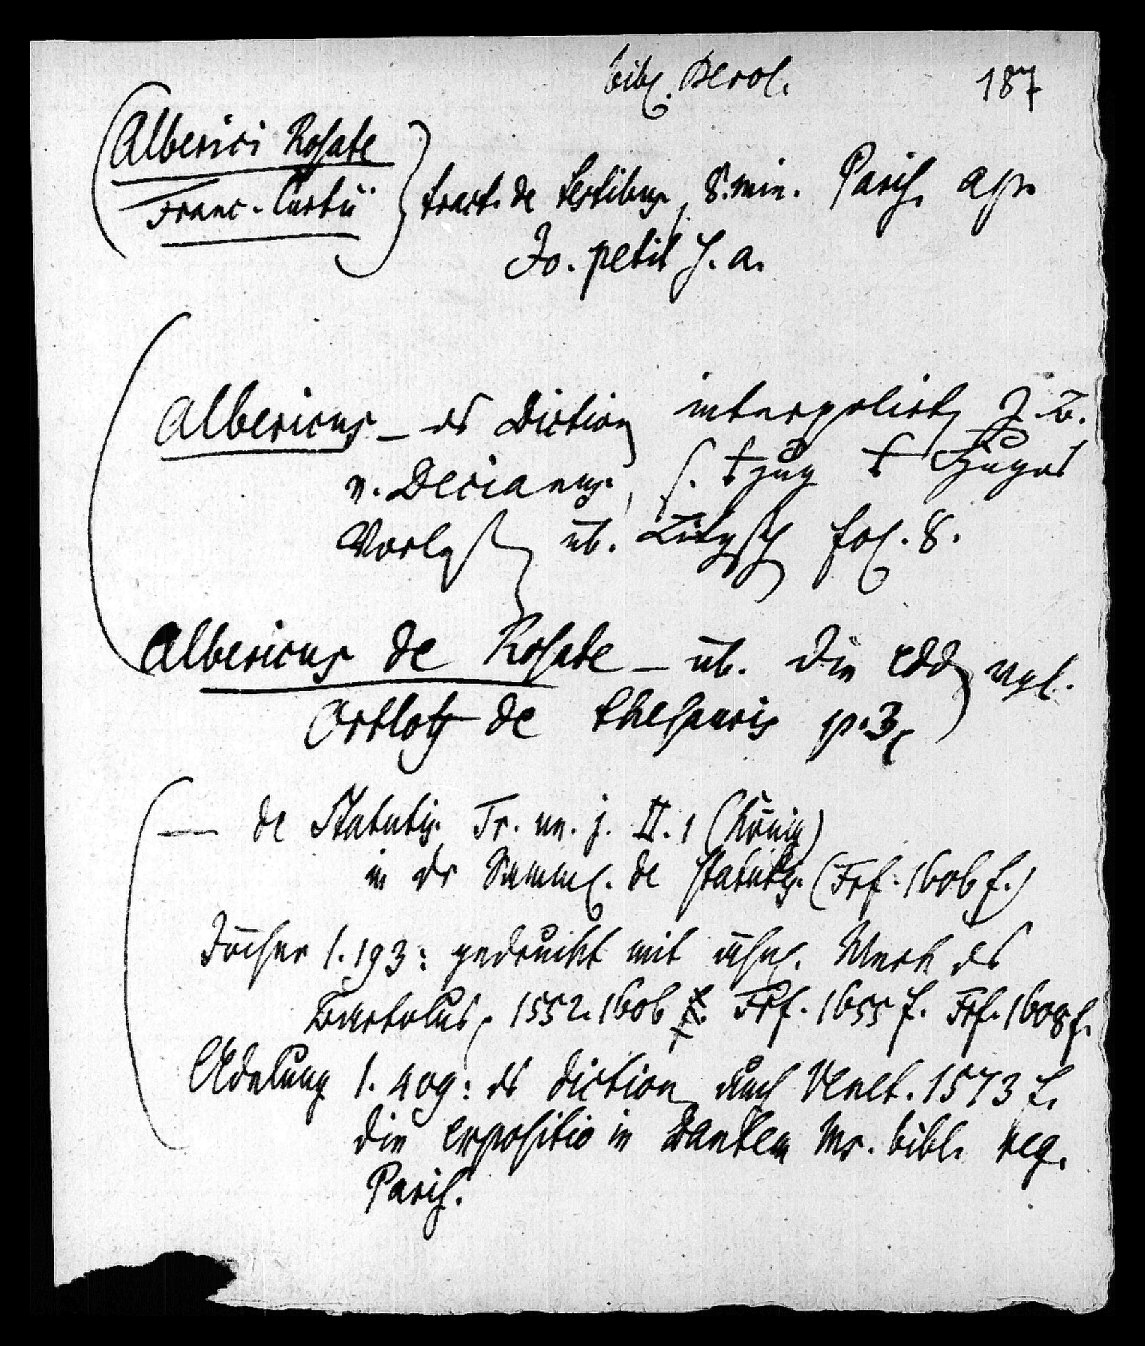 bibl. Berol. 187
Alberici Rosate
Franc. Curtii } tract. de testibus, 8. min. Paris. ap.
Jo. petit s. a.
Albericus – diction interpolirt z. B.
v. Decianus, s.
Vorles üb. fol. 8.
Albericus de Rosate – üb. die edd vgl.
Ortloff de thesauris p. 3,
— de Statutis Tr. un. j. II. 1 (König)
in der Samml. de statutis. (Frf. 1606 f.)
Jöcher 1. 193: gedruckt mit ähnl. Werk des
Bartolus, 1552. 1606 f. Frf. 1655 f. Frf. 1608 f.
Adelung 1. 409: diction auch Venet. 1573 f.
die expositio in Dantem Ms. bibl. reg.
Paris.